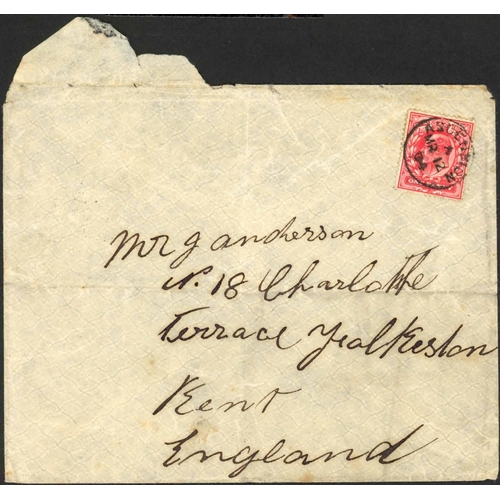 ASCENSION
Mr J anderson
N. 18 Charlotte
Terrace Foalkeston
Kent
England